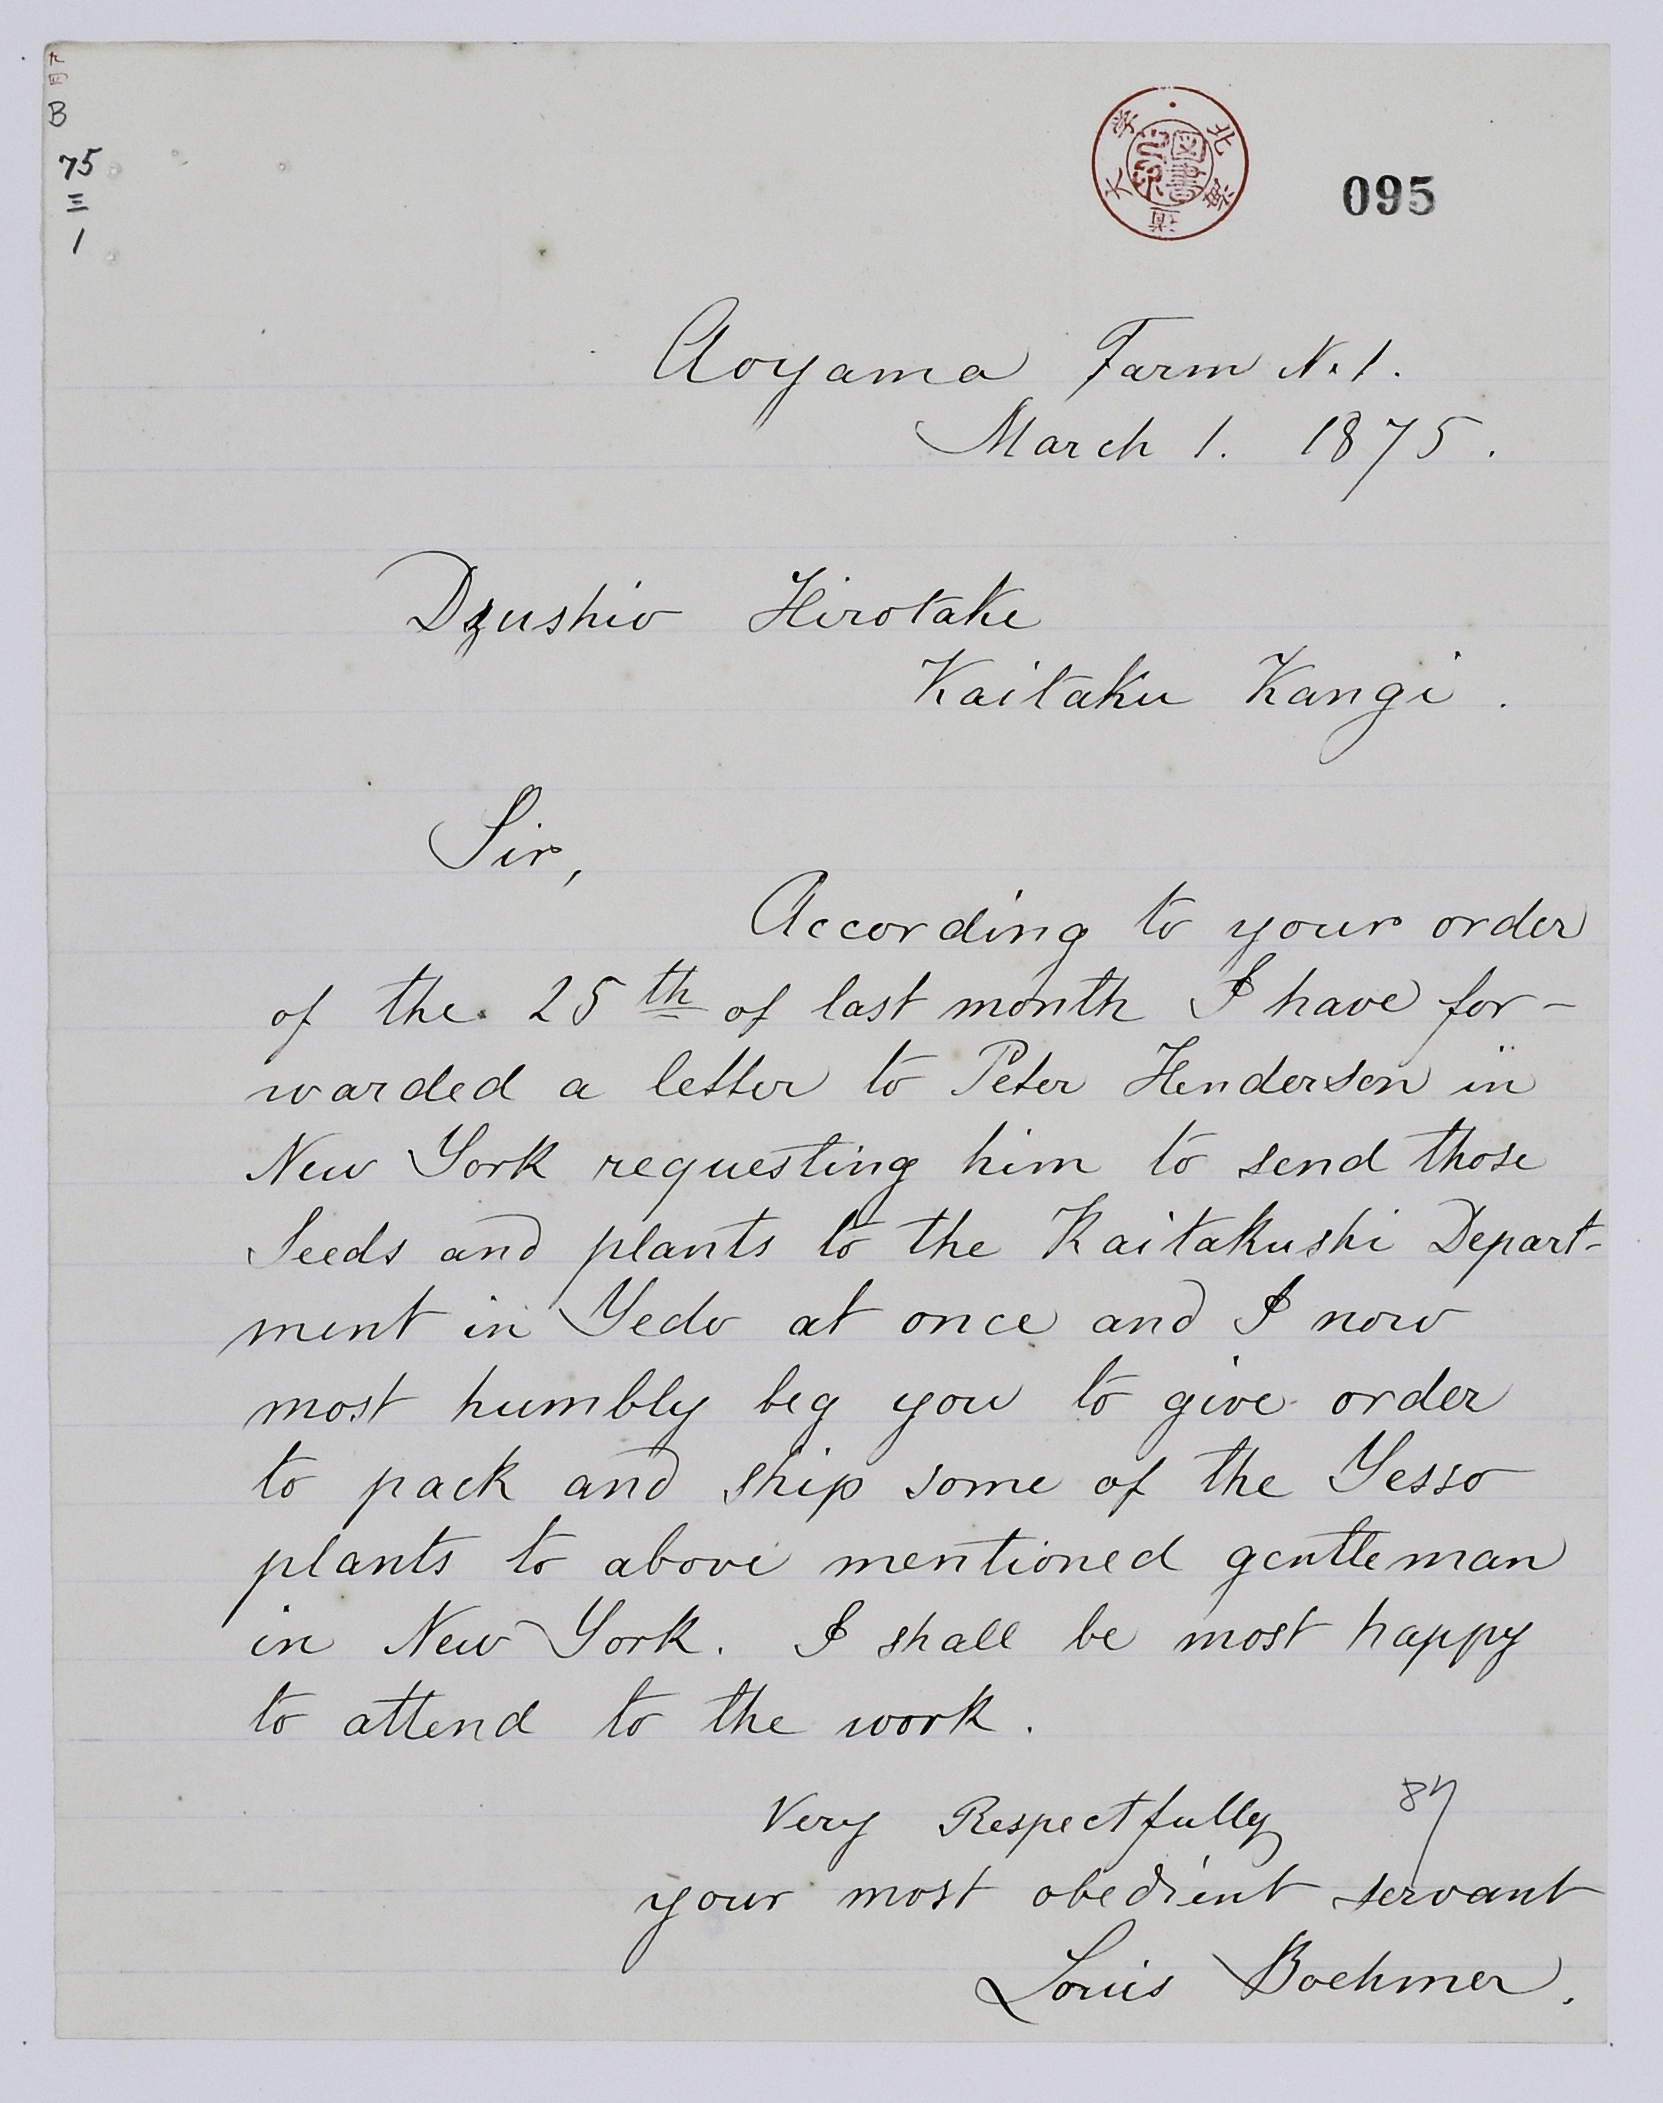 九
四
B
75
三
1
北海道大学
図書
095
Aoyama Farm N. 1.
March 1. 1875.
Dzushio Hirotake
Kaitaku Kangi.
Sir,
According to your order
of the 25th of last month I have for-
warded a letter to Peter Henderson in
New York requesting him to send those
Seeds and plants to the Kaitakushi Depart-
ment in Yedo at once and I now
most humbly beg you to give order
to pack and ship some of the Yesso
plants to above mentioned gentleman
in New York. I shall be most happy
to attend to the work.
Very Respectfully
your most obedient servant
Louis Boehmer.